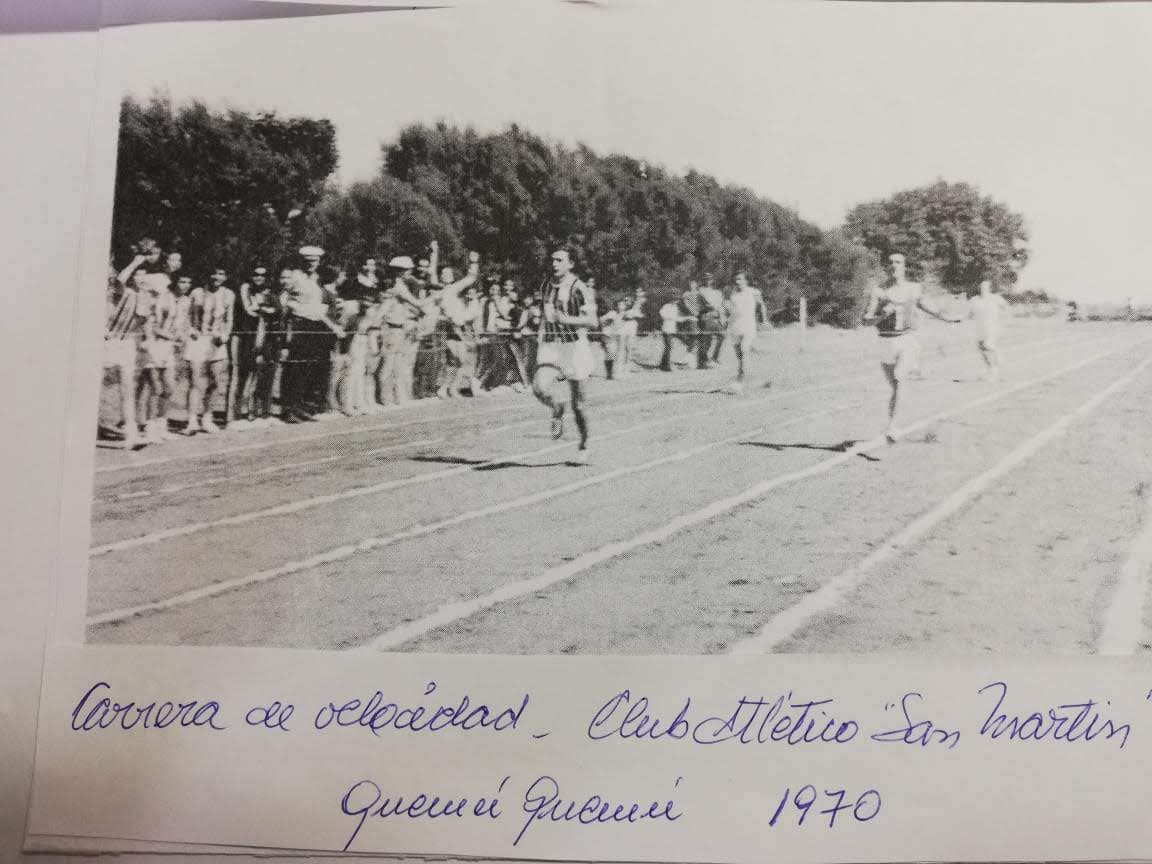 Carrera de velocidad - Club Atlético "San Martin"
Quemú Quemú 1970